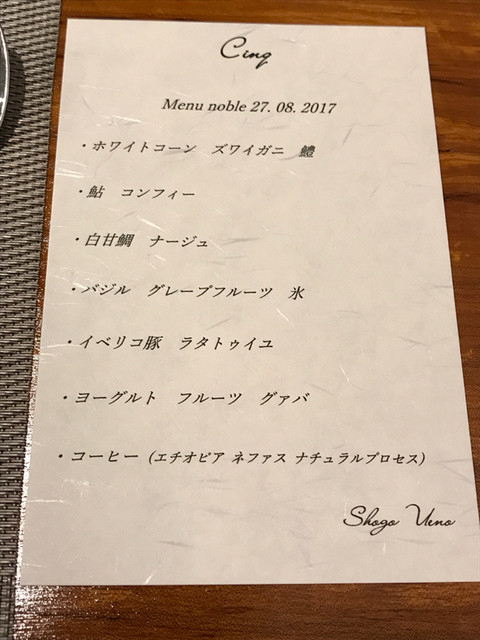 Cinq
Menu noble 27. 08. 2017
・ホワイトコーン　ズワイガニ　鱧
・鮎　コンフィー
・白甘鯛　ナージュ
・バジル　グレープフルーツ　氷
・イベリコ豚　ラタトゥイユ
・ヨーグルト　フルーツ　グァバ
・コーヒー (エチオピア ネファス ナチュラルプロセス)
Shogo Ueno